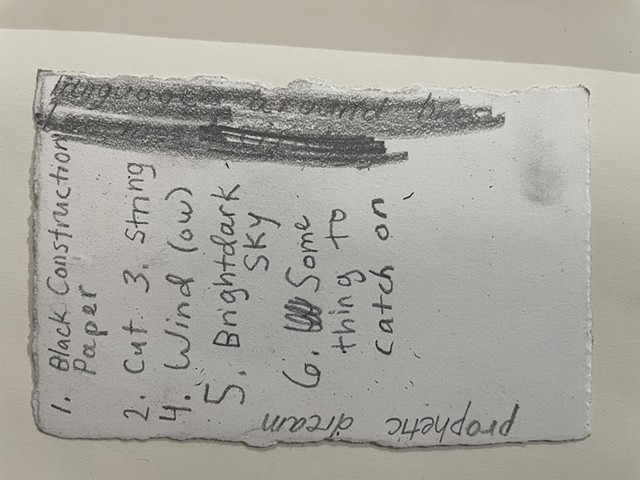 1. Black Construction
Paper
2. Cut 3. String
4. Wind (ow)
5. Brightdark
Sky
6. Some
thing to
catch on
prophetic dream